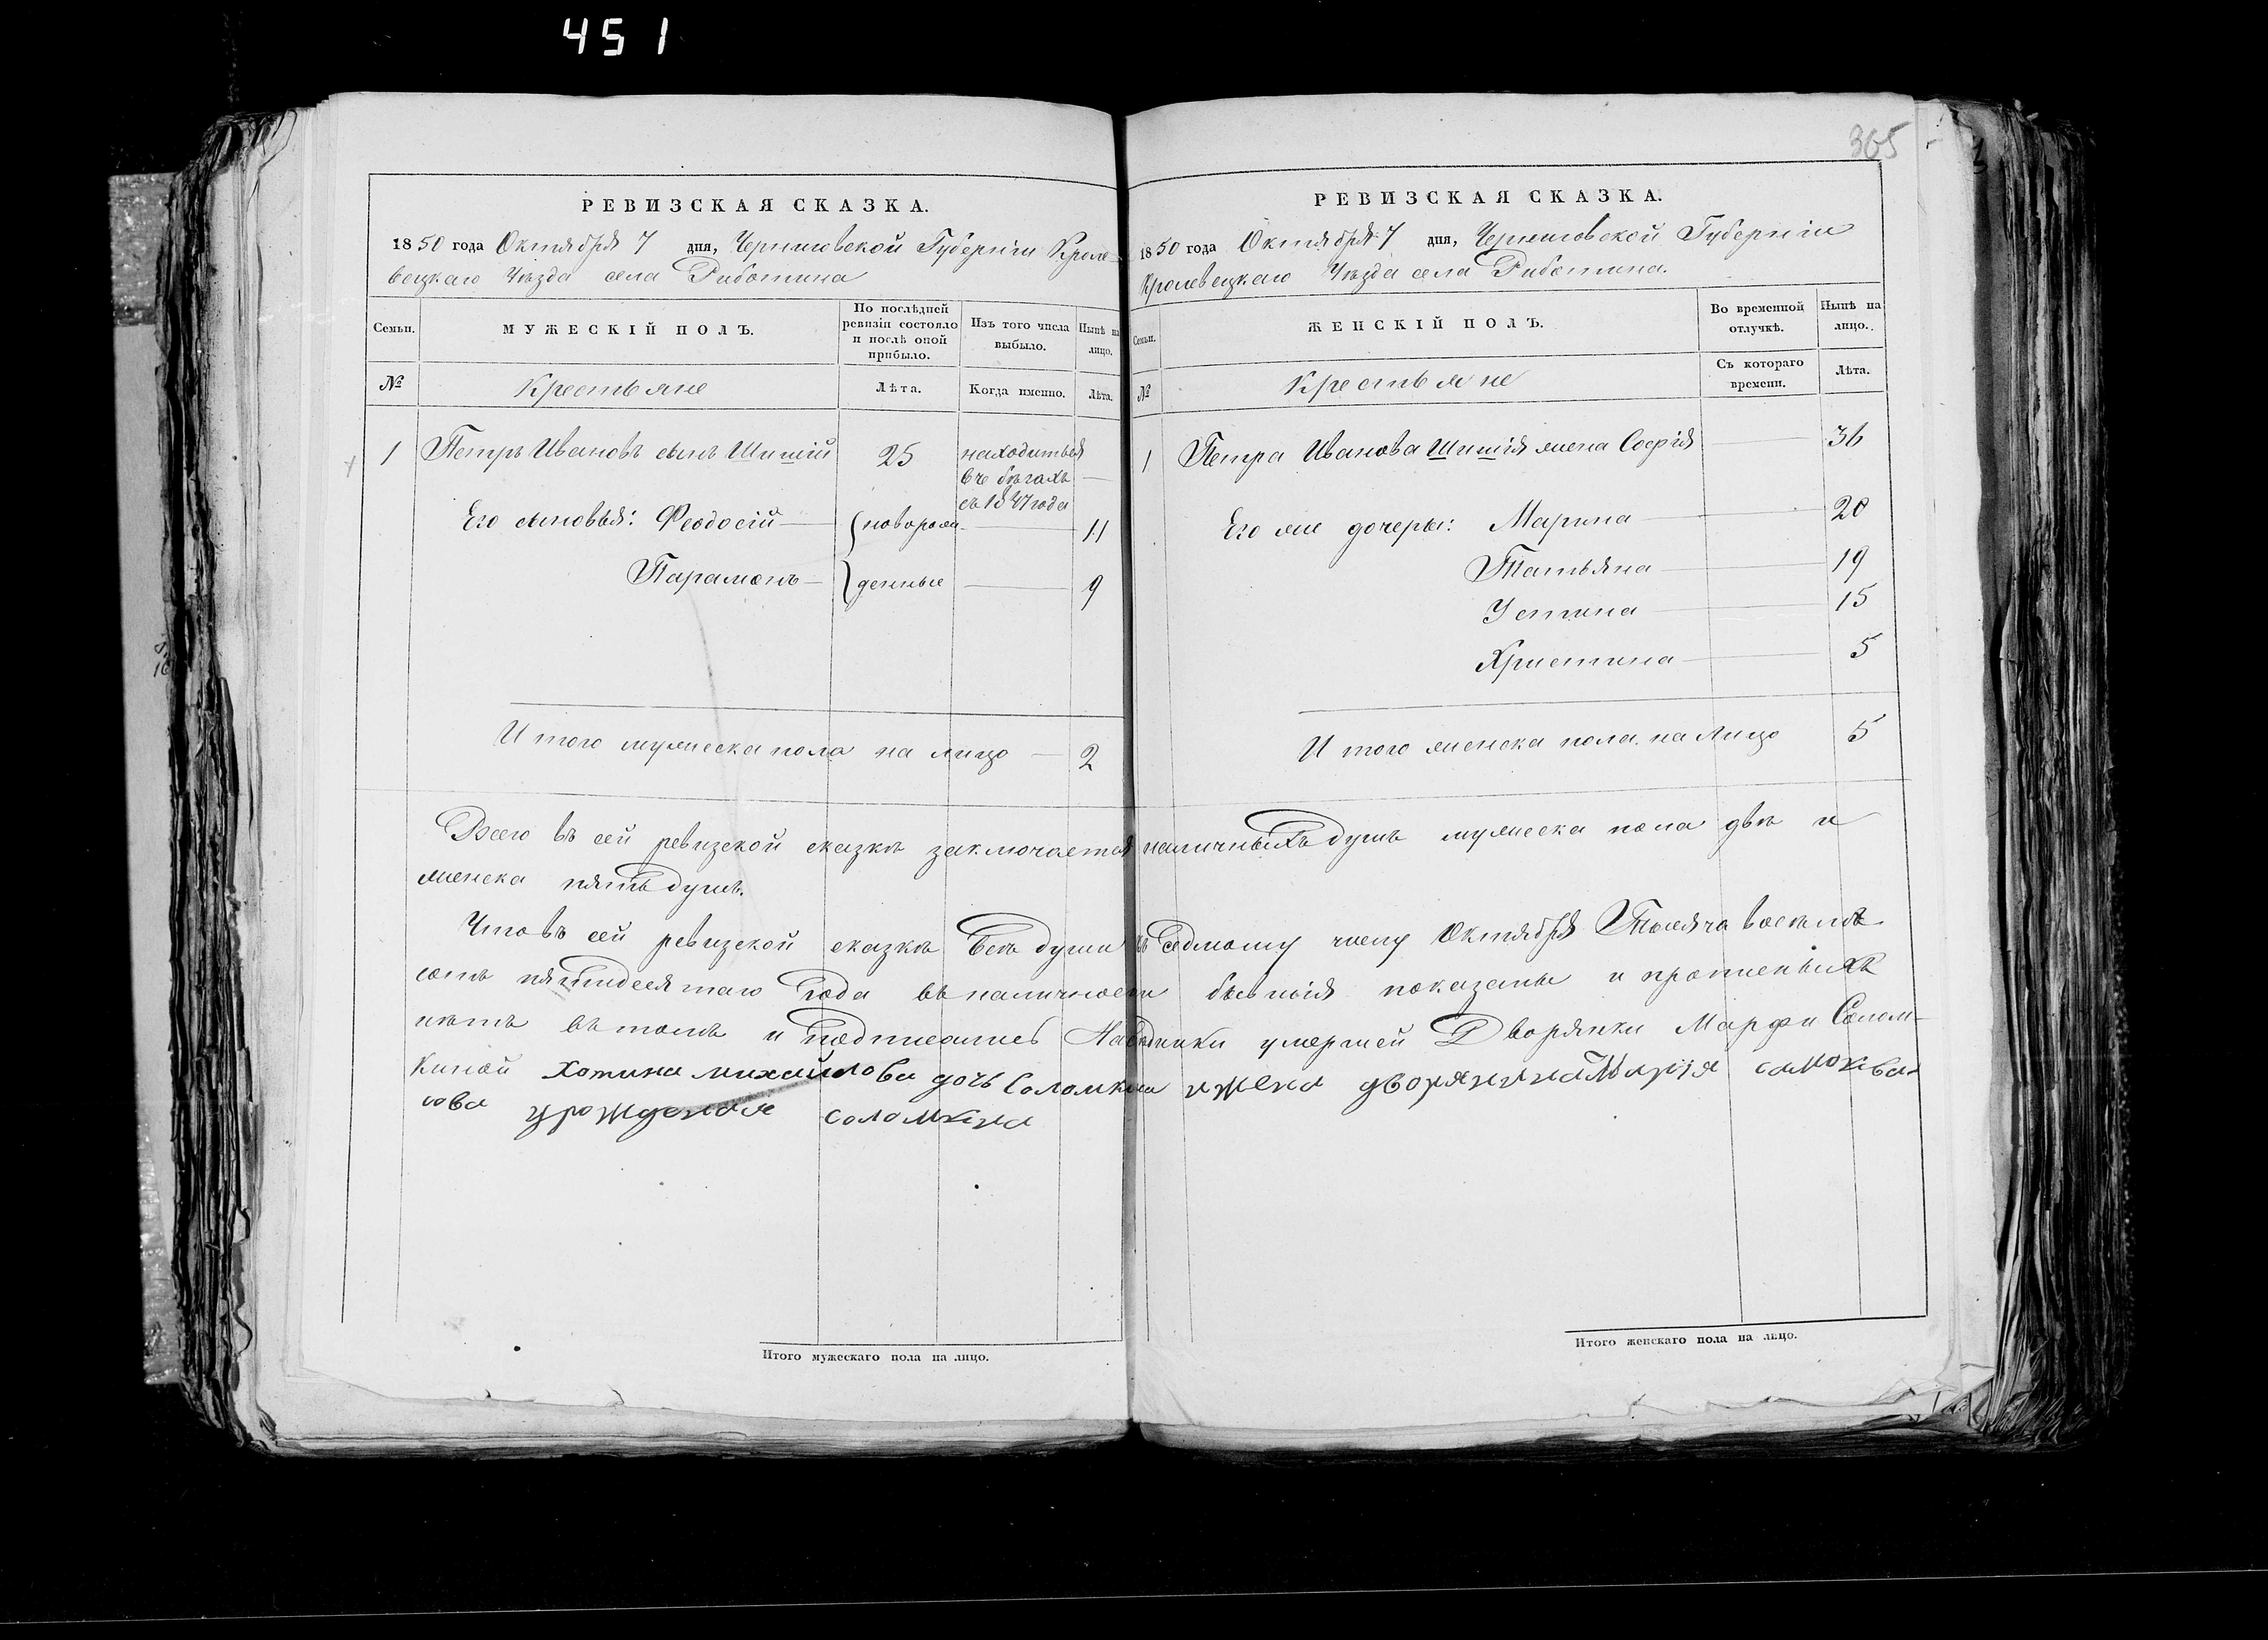 451
365
РЕВИЗСКАЯ СКАЗКА.
1850 года Октября 7 дня, Черниговской Губерніи Кроле-
вецкаго Уѣзда села Риботина
Семьи.
МУЖЕСКІЙ ПОЛЪ.
По послѣдней ревизіи состояло и послѣ оной прибыло.
Изъ того числа выбыло.
Нынѣ на лицо.
№
Крестьяне
Лѣта.
Когда именно.
Лѣта.
1 Петръ Ивановъ сынъ Шишій 25 находиться
въ бѣгахъ —
съ 1847 года
Его сыновья: Феодосій — новорож- 11
Парамонъ — денные 9
И того мужеска пола на лицо — 2
РЕВИЗСКАЯ СКАЗКА.
1850 года Октября 7 дня, Черниговской Губерніи
Кролевецкаго Уѣзда села Риботина.
Семьи.
ЖЕНСКІЙ ПОЛЪ.
Во временной отлучкѣ.
Нынѣ на лицо.
№
Крестьяне
Съ котораго времени.
Лѣта.
1 Петра Иванова Шишія жена Софія 36
Его же дочеры: Марина 20
Татьяна 19
Устина 15
Христина 5
И того женска пола на лицо 5
Всего въ сей ревизской сказкѣ заключается наличныхъ душъ мужеска пола двѣ и
женска пять душъ.
Что въ сей ревизской сказкѣ всѣ души къ седмому числу Октября Тысяча восемь
сотъ пятидесятаго года въ наличности бывшія показаны и прописныхъ
нѣтъ въ томъ и подписались умершей Дворянки Марфи Солом-
киной михайлова дочь Соломкина и жена дворянина Марія самоква-
сова урожденая соломкина
Итого мужескаго пола на лицо.
Итого женскаго пола на лицо.